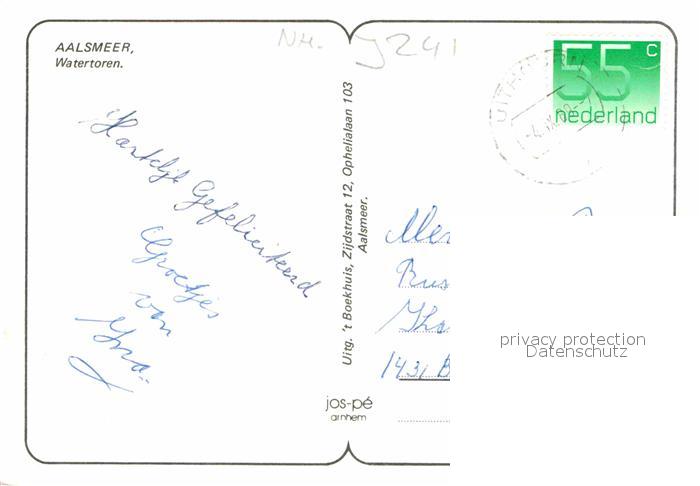 AALSMEER,
Watertoren.
NH.
Hartelijk Gefeliciteerd
Groetjes
van
Uitg. 't Boekhuis, Zijdstraat 12, Ophelialaan 103
Aalsmeer.
jos-pé
arnhem
55 c
nederland
1431 B
privacy protection
Datenschutz